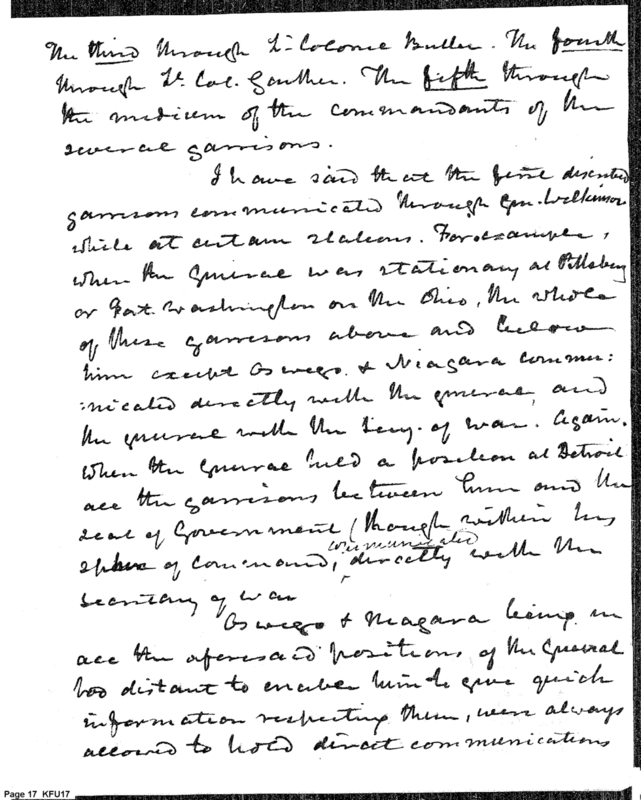 The third through Lt. Colonel Butler. The fourth
through Lt. Col. Gaither. The fifth through
the medium of the commandants of the
several garrisons.
I have said that at the first district
garrisons communicated through Gen. Wilkinson
while at certain stations. For example,
when the General was stationary at Pittsburg
or Fort Washington on the Ohio, the whole
of these garrisons above and below
him except Oswego & Niagara commu:
:nicated directly with the general, and
the general with the Secy. of war. Again.
when the General held a position at Detroit
all the garrisons between him and the
seat of Government (though within his
sphere of command, communicated directly with the
secretary of war
Oswego & Niagara being in
all the aforesaid positions of the General
too distant to enable him to give quick
information respecting them, were always
allowed to hold direct communications
Page 17 KFU17